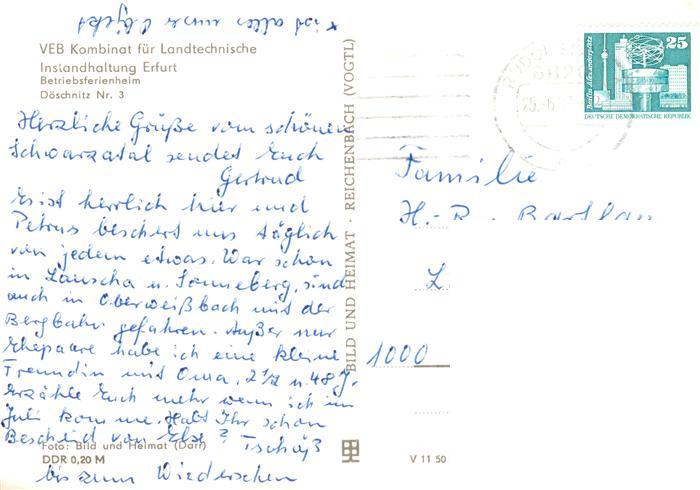 VEB Kombinat für Landtechnische
Instandhaltung Erfurt
Betriebsferienheim
Döschnitz Nr. 3
Herzliche Grüße vom schönen
Schwarzatal sendet Euch
Gertrud
Es ist herrlich hier und
Petrus beschert uns täglich
von jedem etwas. War schon
in Lauscha u. Sonneberg, sind
auch in Oberweißbach mit der
Bergbahn gefahren. Außer nur
Ehepaare habe ich eine kleine
Freundin mit Oma, 2½ u. 48 J.
Erzähle Euch mehr wenn ich im
Juli komme. Habt Ihr schon
Bescheid von Else? Tschüß
bis zum Wiedersehen
x ist alles unser
Foto: Bild und Heimat (Darr)
DDR 0,20 M
V 11 50
BILD UND HEIMAT · REICHENBACH (VOGTL)
25
Berlin, Alexanderplatz
DEUTSCHE DEMOKRATISCHE REPUBLIK
Familie
H.-R.
1000